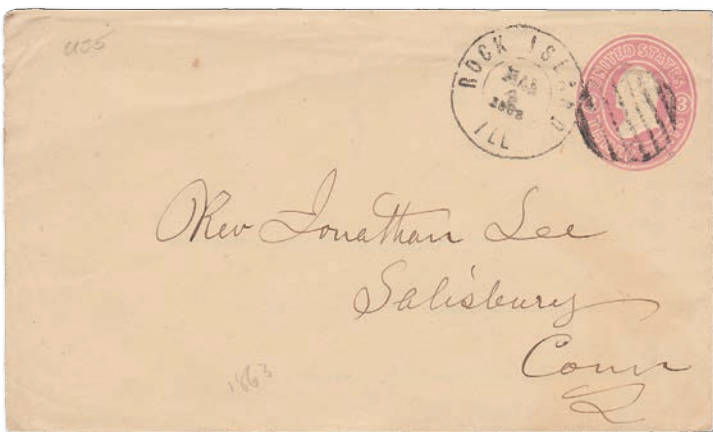 U55
ROCK ISLAND
MAR
2
1863
ILL
UNITED STATES
3
THREE
Rev Jonathan Lee
Salisbury
Conn
1863